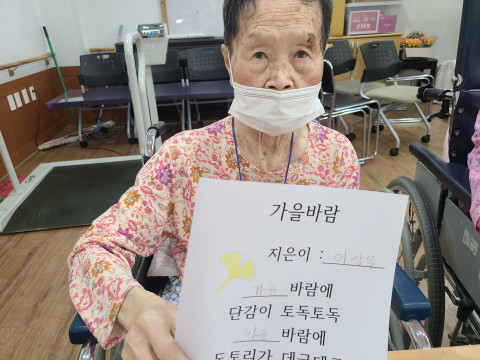 가을바람
지은이 :
가을 바람에
단감이 토독토독
가을 바람에
도토리가 데굴데굴